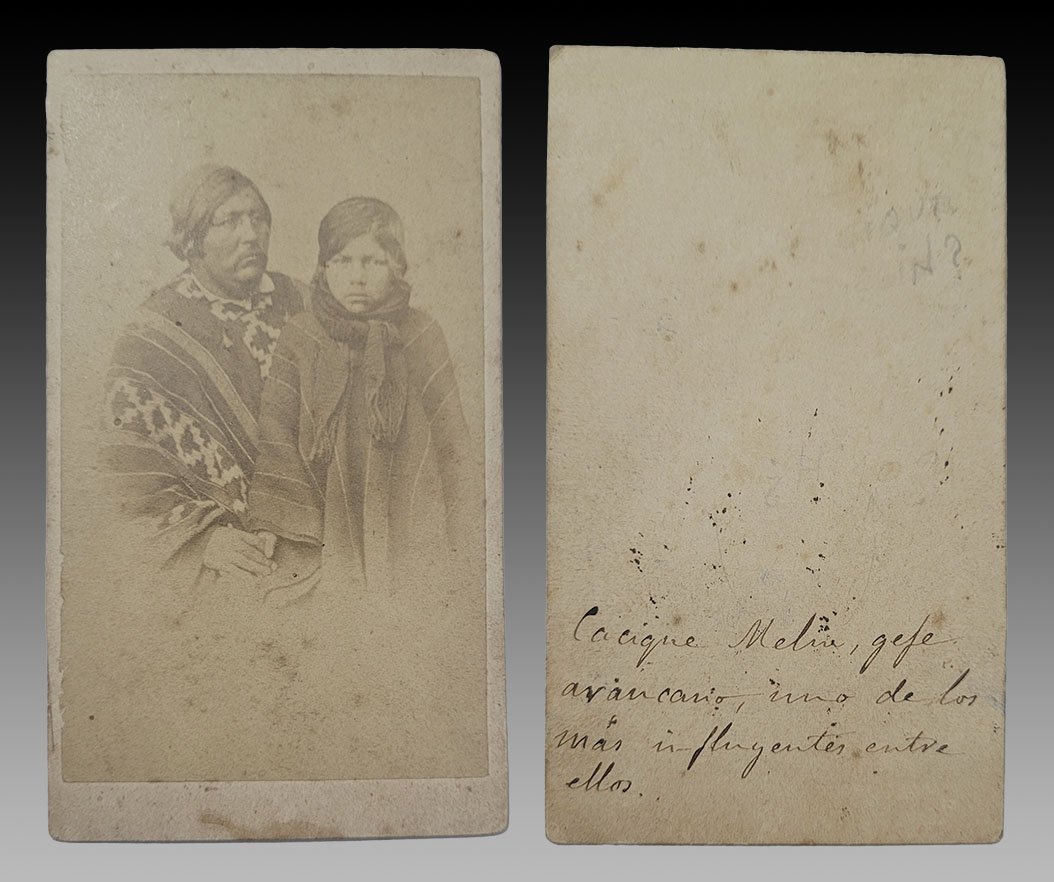 Cacique Melin, gefe
araucano, uno de los
más influyentes entre
ellos.